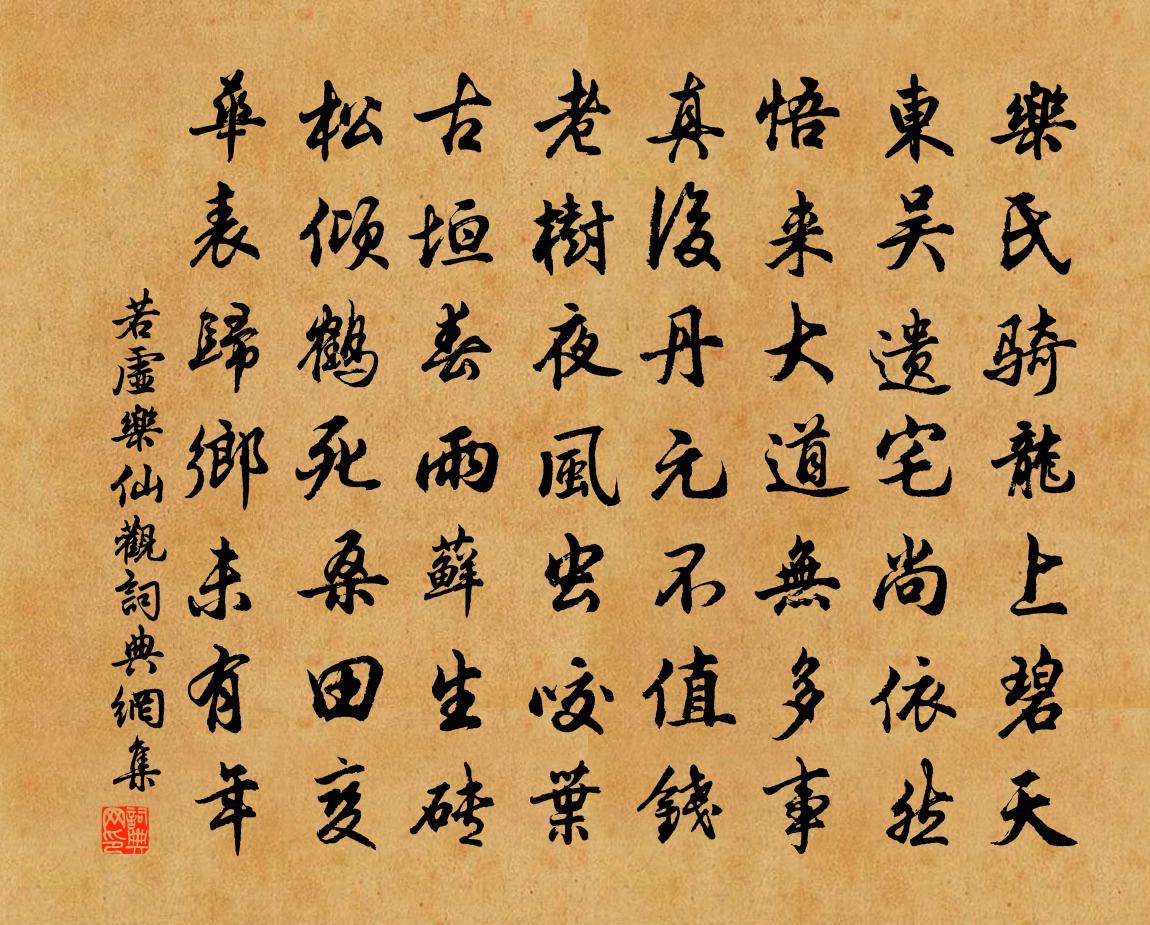 樂氏骑龍上碧天
東吴遗宅尚依然
悟来大道無多事
真後丹元不值錢
老樹夜風虫咬葉
古垣春雨蘚生砖
松倾鶴死桑田变
華表歸鄉未有年
若虛樂仙觀詞典網集
詞典网印